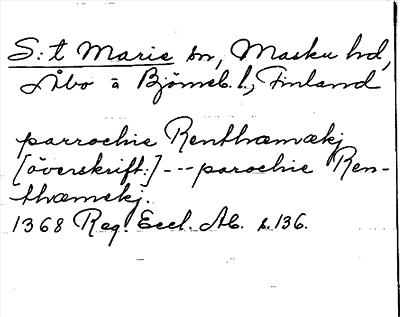 S:t Marie sn, Masku hd,
Åbo ä Björneb. l., Finland
parrochie Renthæmækj
[överskrift:] --- parochie Ren-
thæmekj.
1368 Reg. Eccl. Ab. s. 136.